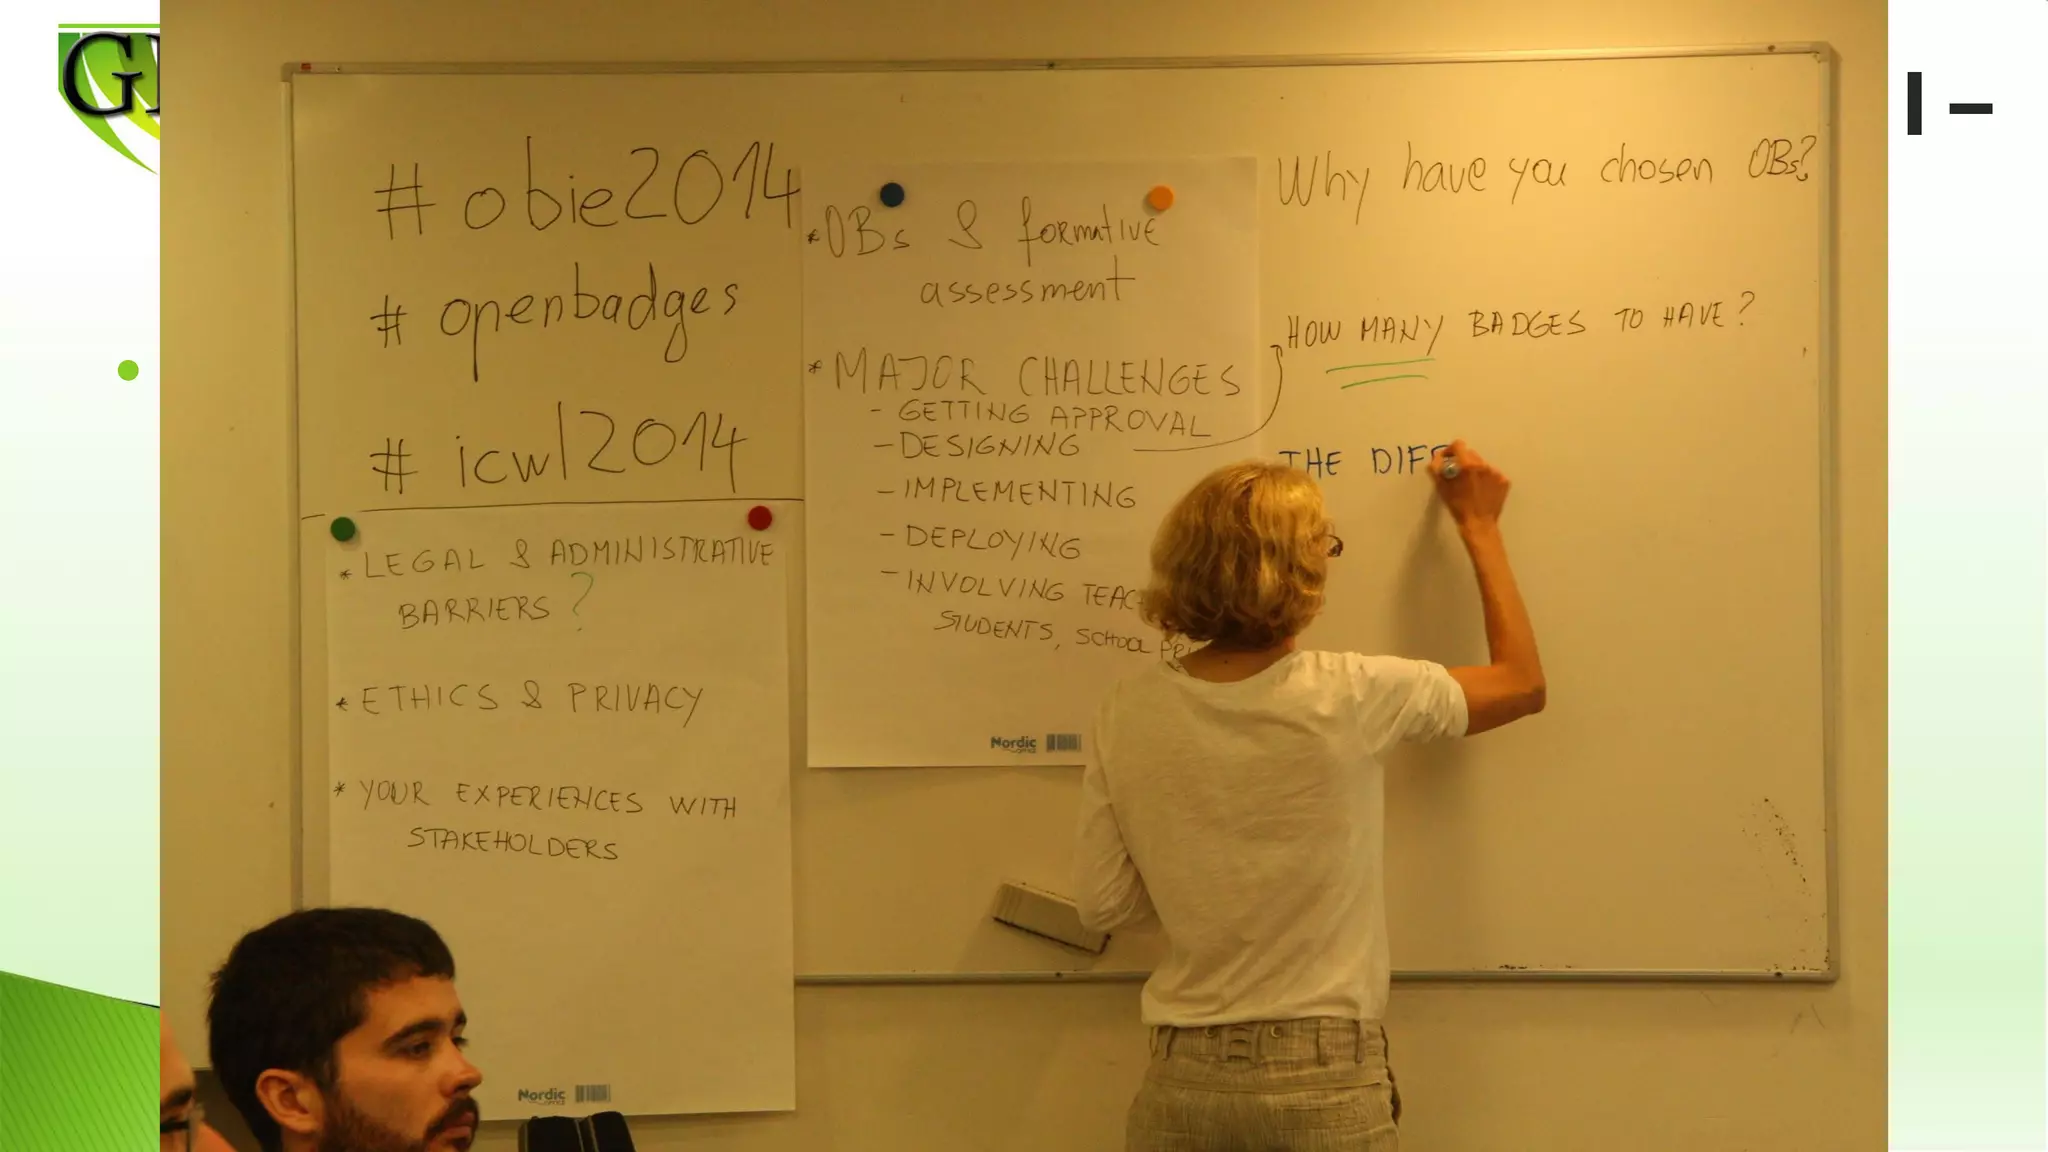 #obie2014
# openbadges
# icwl2014
* LEGAL & ADMINISTRATIVE
BARRIERS ?
* ETHICS & PRIVACY
* YOUR EXPERIENCES WITH
STAKEHOLDERS
Nordic
* OBs & formative
assessment
* MAJOR CHALLENGES
- GETTING APPROVAL
- DESIGNING
- IMPLEMENTING
- DEPLOYING
- INVOLVING
STUDENTS, SCHOOL
Nordic
Why have you chosen OBs?
HOW MANY BADGES TO HAVE?
THE DIFF